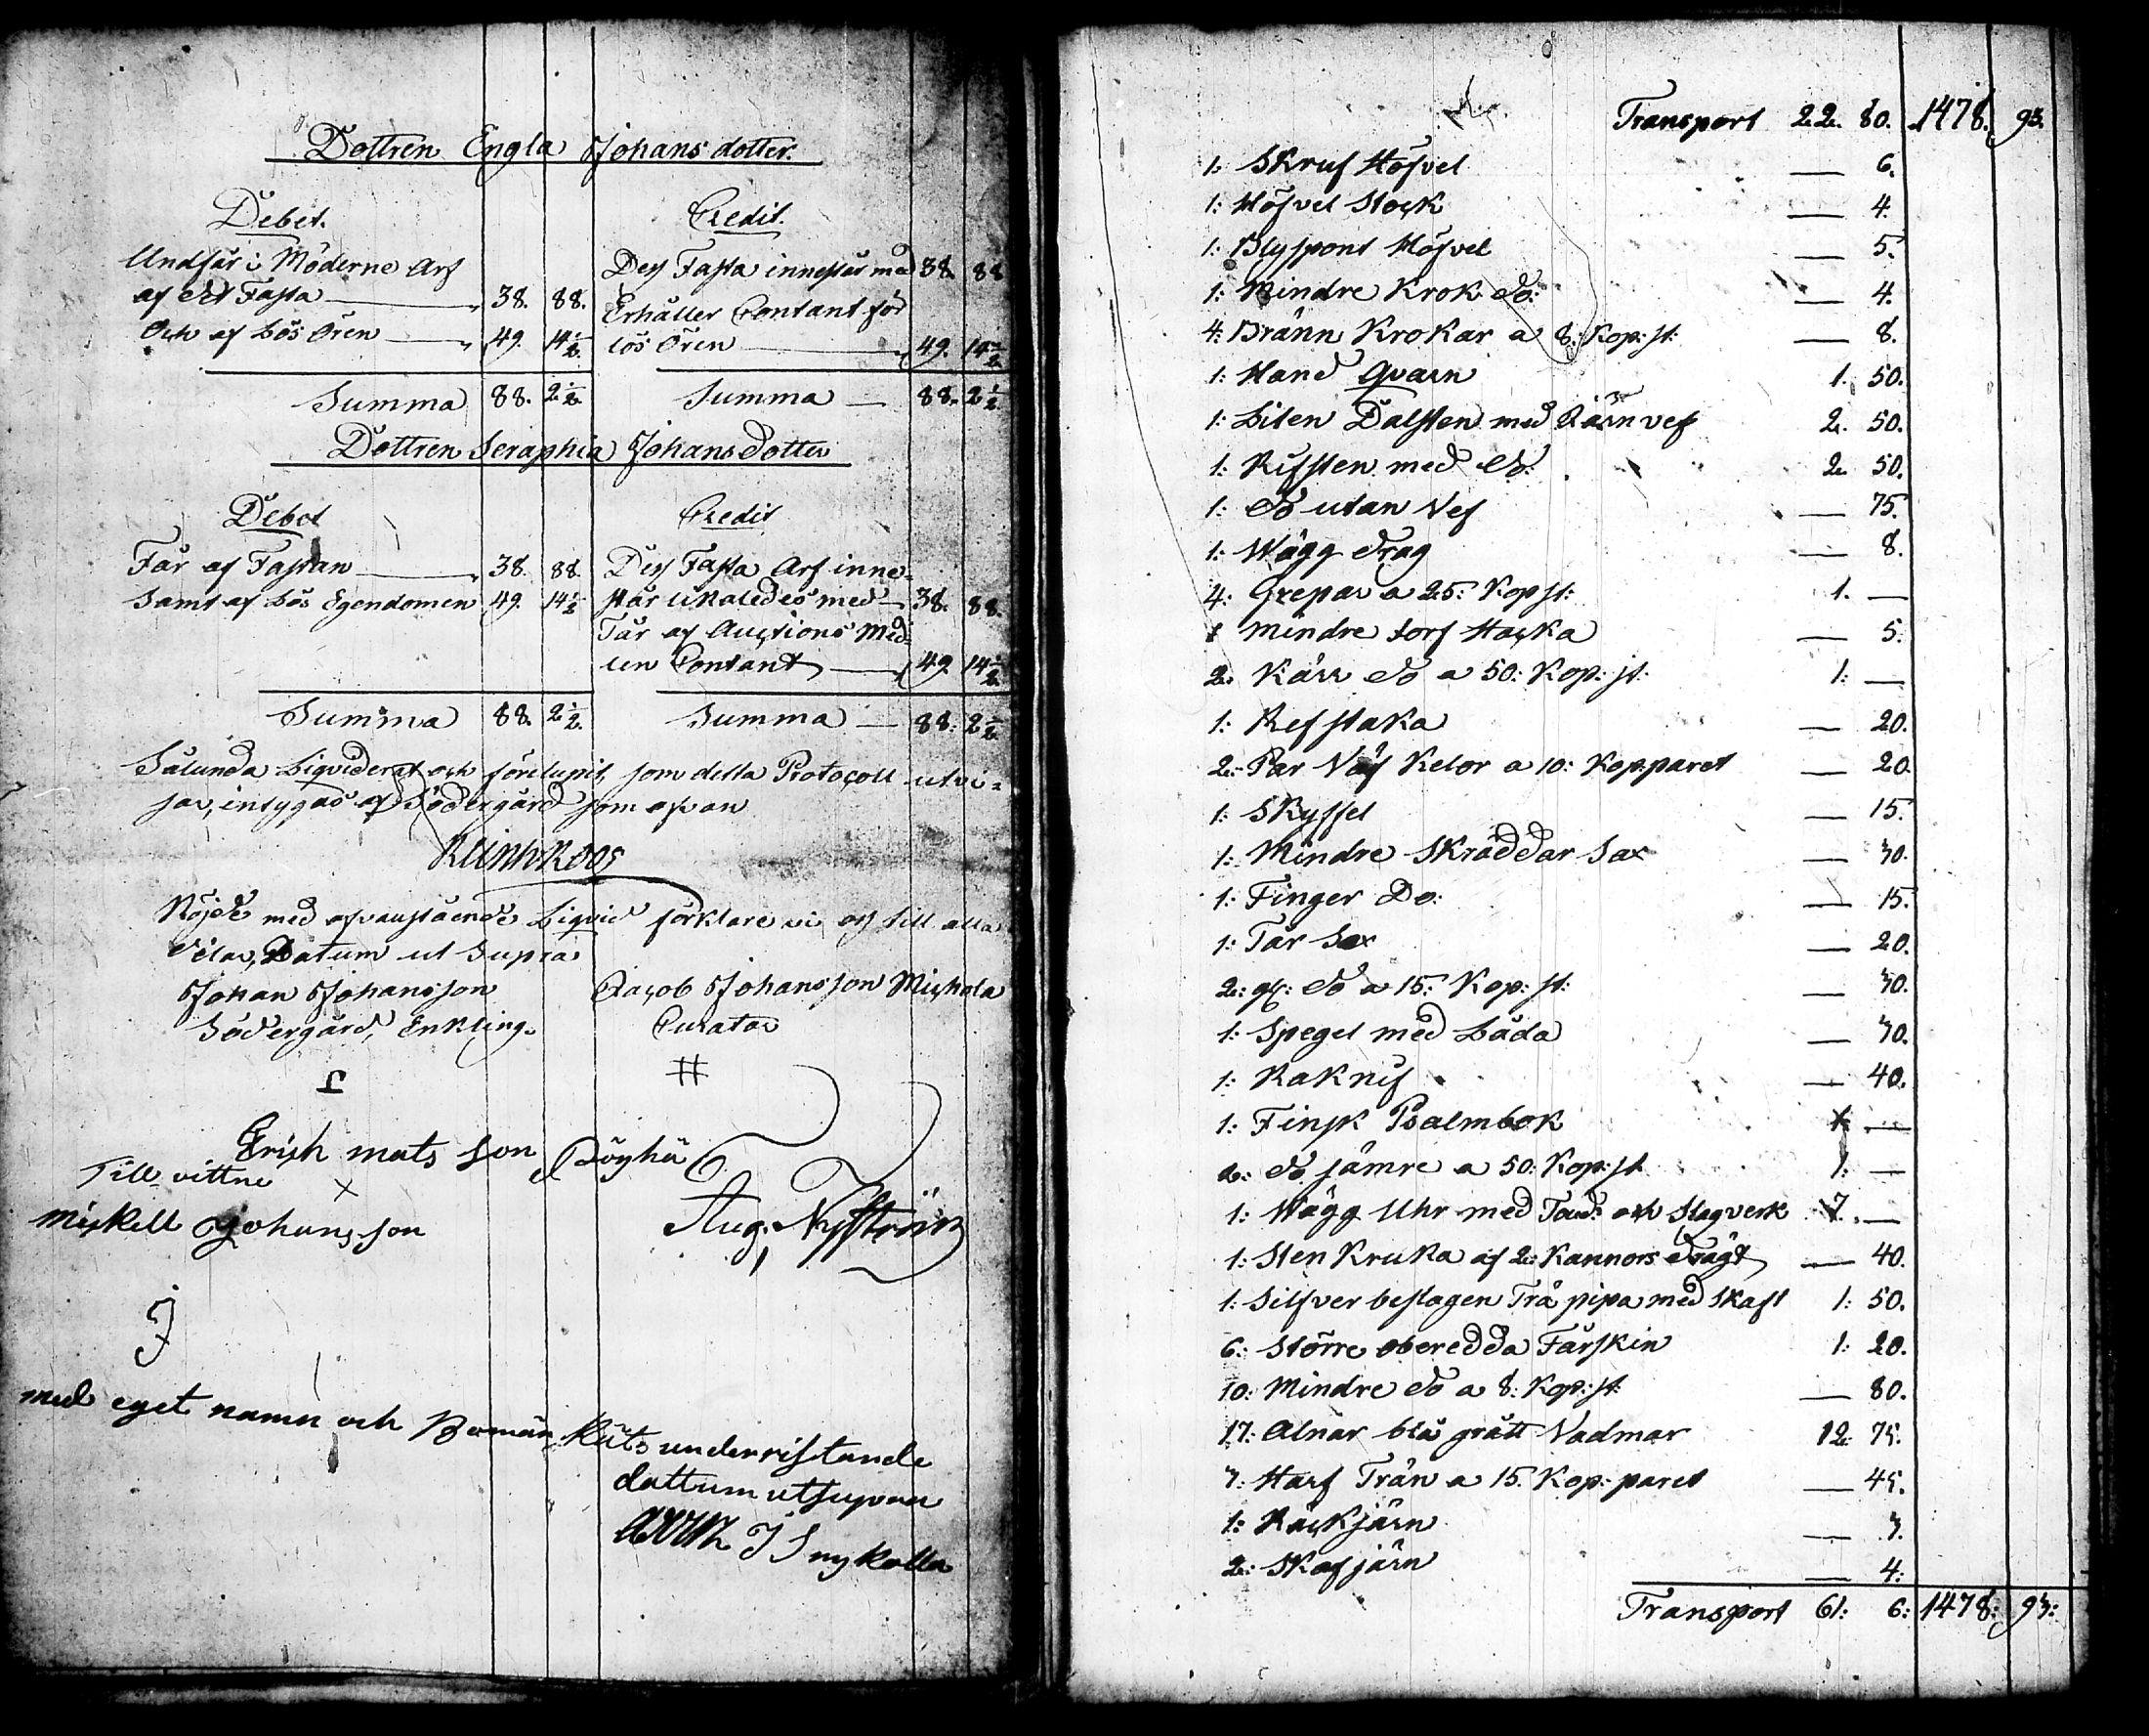 Dottren Engla Johansdotter.
Debet.
Undfår i Möderne Arf
af det Fasta 38. 88.
Och af Lös Ören 49. 14 1/2
Summa 88. 2 1/2.
Credit.
Dess Fasta innestår med 38. 88
Erhåller Contant för
Lös Ören 49. 14 1/2
Summa 88. 2 1/2
Dottren Seraphia Johansdotter
Debet
Får af Fastan 38. 88.
Samt af Lös Egendomen 49. 14 1/2
Summa 88. 2 1/2.
Credit
Dess Fasta Arf inne-
står likaledes med 38. 88.
Får af Auctions Med-
len Contant 49. 14 1/2
Summa 88. 2 1/2
Sålunda Liqviderat och förelupit, som detta Protocoll utvi-
sar, intygas af Södergård som ofvan
Nöjde med ofvanstående Liqvid förklare vi oss till alla
delar, Datum ut Supra
Johan Johansson
Södergård, Enkling.
Jacob Johansson Mickola
Curator
Erich mats son Pöyhä
Till vittne
Mickell Johansson
Aug. Nyström
med eget namn och Bomärkets underristande
dattum utsupra
J S nykalla
Transport 22. 80. 1478. 93.
1: Skruf Höfvel — 6.
1: Höfvel Stock — 4.
1: Blyspont Höfvel — 5.
1: Mindre Krok do: — 4.
4: Bränn Krokar a 8: Kop: st: — 8.
1: Hand Qvarn 1. 50.
1: Liten Dalsten med Järn vef 2. 50.
1: Rifsten med do: 2. 50.
1: do utan Vef — 75.
1: Wägg drag — 8.
4: Grepar a 25: Kop st: 1. —
1 Mindre torf Hacka — 5.
2: Kärr do a 50: Kop: st: 1: —
1: Refstaka — 20.
2: Par Väf Kelor a 10: Kop: paret — 20.
1: Skyffel — 15.
1: Mindre Skräddar Sax — 30.
1: Finger Do: — 15.
1: Får Sax — 20.
2: gl: do a 15: Kop: st: — 30.
1: Spegel med Låda — 30.
1: Rak nif — 40.
1: Finsk Psalmbok —
2: do sämre a 50: Kop: st 1: —
1: Wägg Uhr med Foud: och Slagverk 7. —
1: Sten Kruka af 2: Kannors drägt — 40.
1: Silfver beslagen Trä pipa med Skaft 1: 50.
6: Större oberedda Fårskin 1: 20.
10: Mindre do a 8: Kop: st: — 80.
17: Alnar blå grått Vadmar 12: 75.
3: Harf Trän a 15. Kop: paret — 45.
1: Räckjärn — 3.
2: Skafjärn — 4:
Transport 61: 6: 1478: 93: